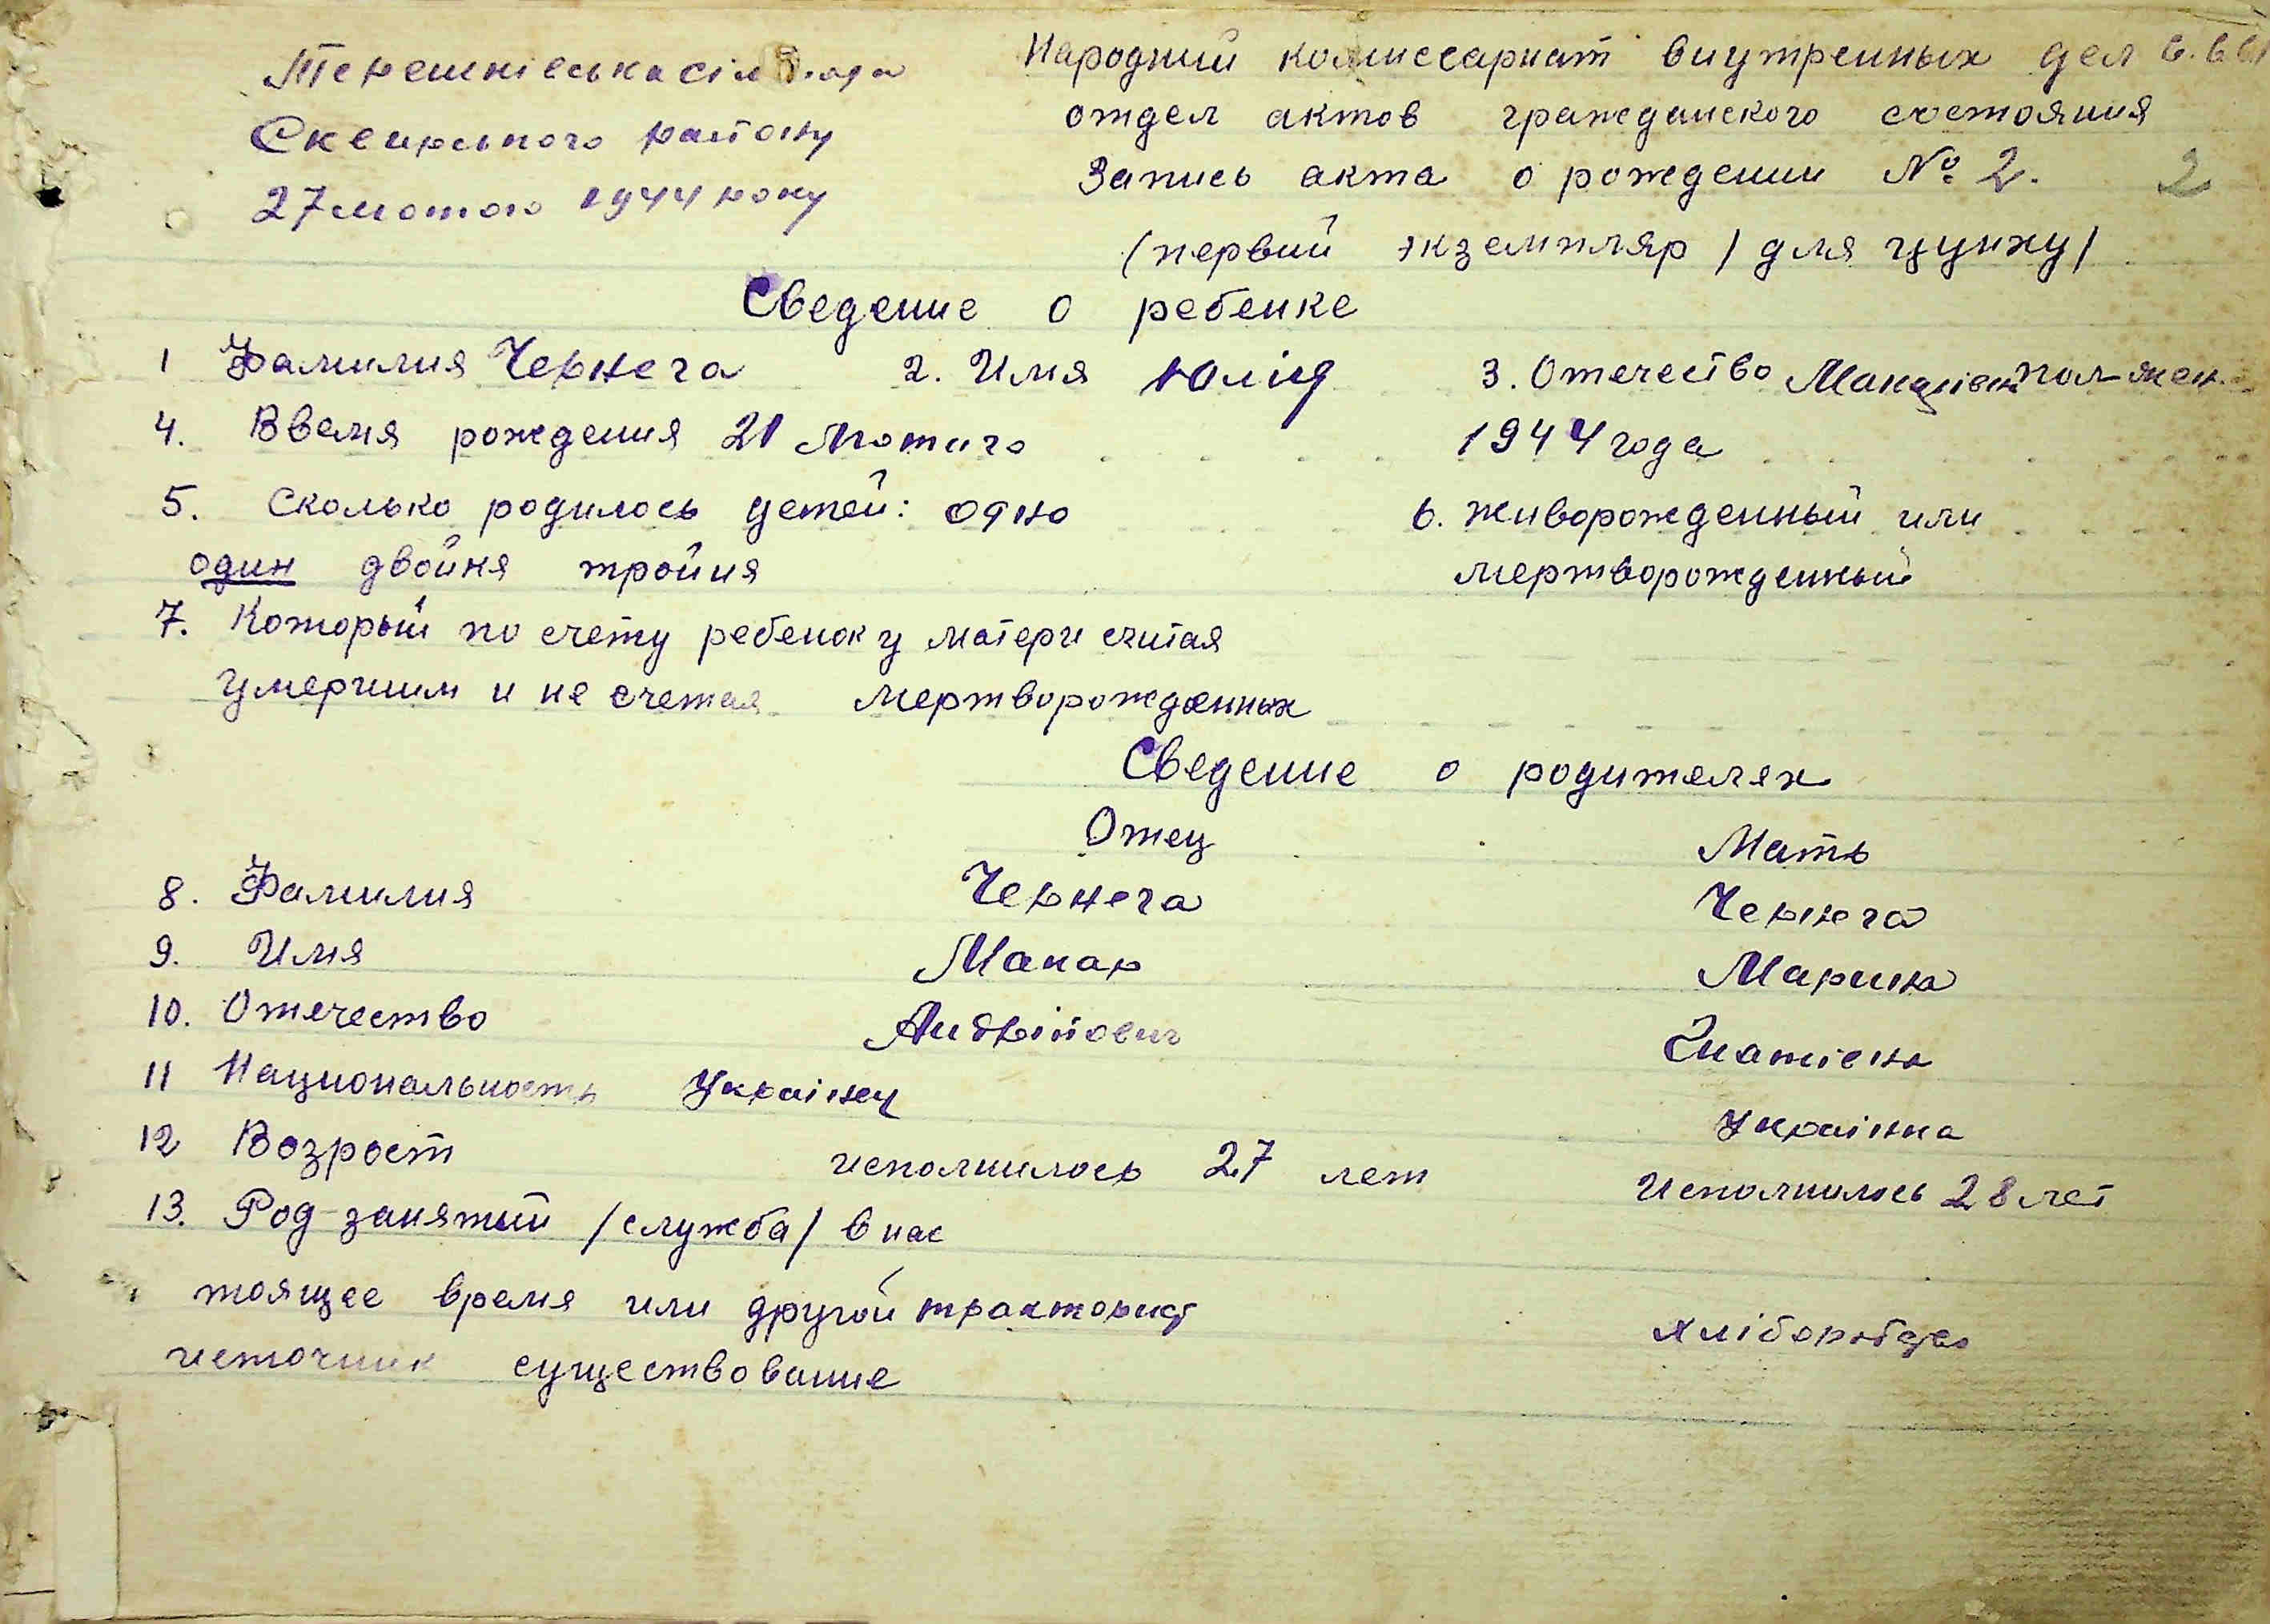 Терешківська сіл рада
Сквирського району
27 лютого 1944 року
Народний комиссариат внутренных дел
отдел актов гражданского состояния
Запись акта о рождении № 2. 2
(первий экземпляр / для цунху /
Сведение о ребенке
1 Фамилия Чернега 2. Имя Юлія 3. Отечество пол жен.
4. Ввемя рождения 21 лютого 1944 года
5. Сколько родилось детей: одно 6. живорожденный или
один двойня тройня мертворожденный
7. Который по счету ребенок у матери считая
умершим и не счетая мертворожденных
Сведение о родителях
Отец Мать
8. Фамилия Чернега Чернега
9. Имя Макар Марина
10. Отечество Андрійович Гнатівна
11 Национальность Українец Українка
12 Возрост исполнилось 27 лет Исполнилось 28 лет
13. Род занятий /служба/ в нас
тоящее время или другой тракторист хліборобство
источник существование